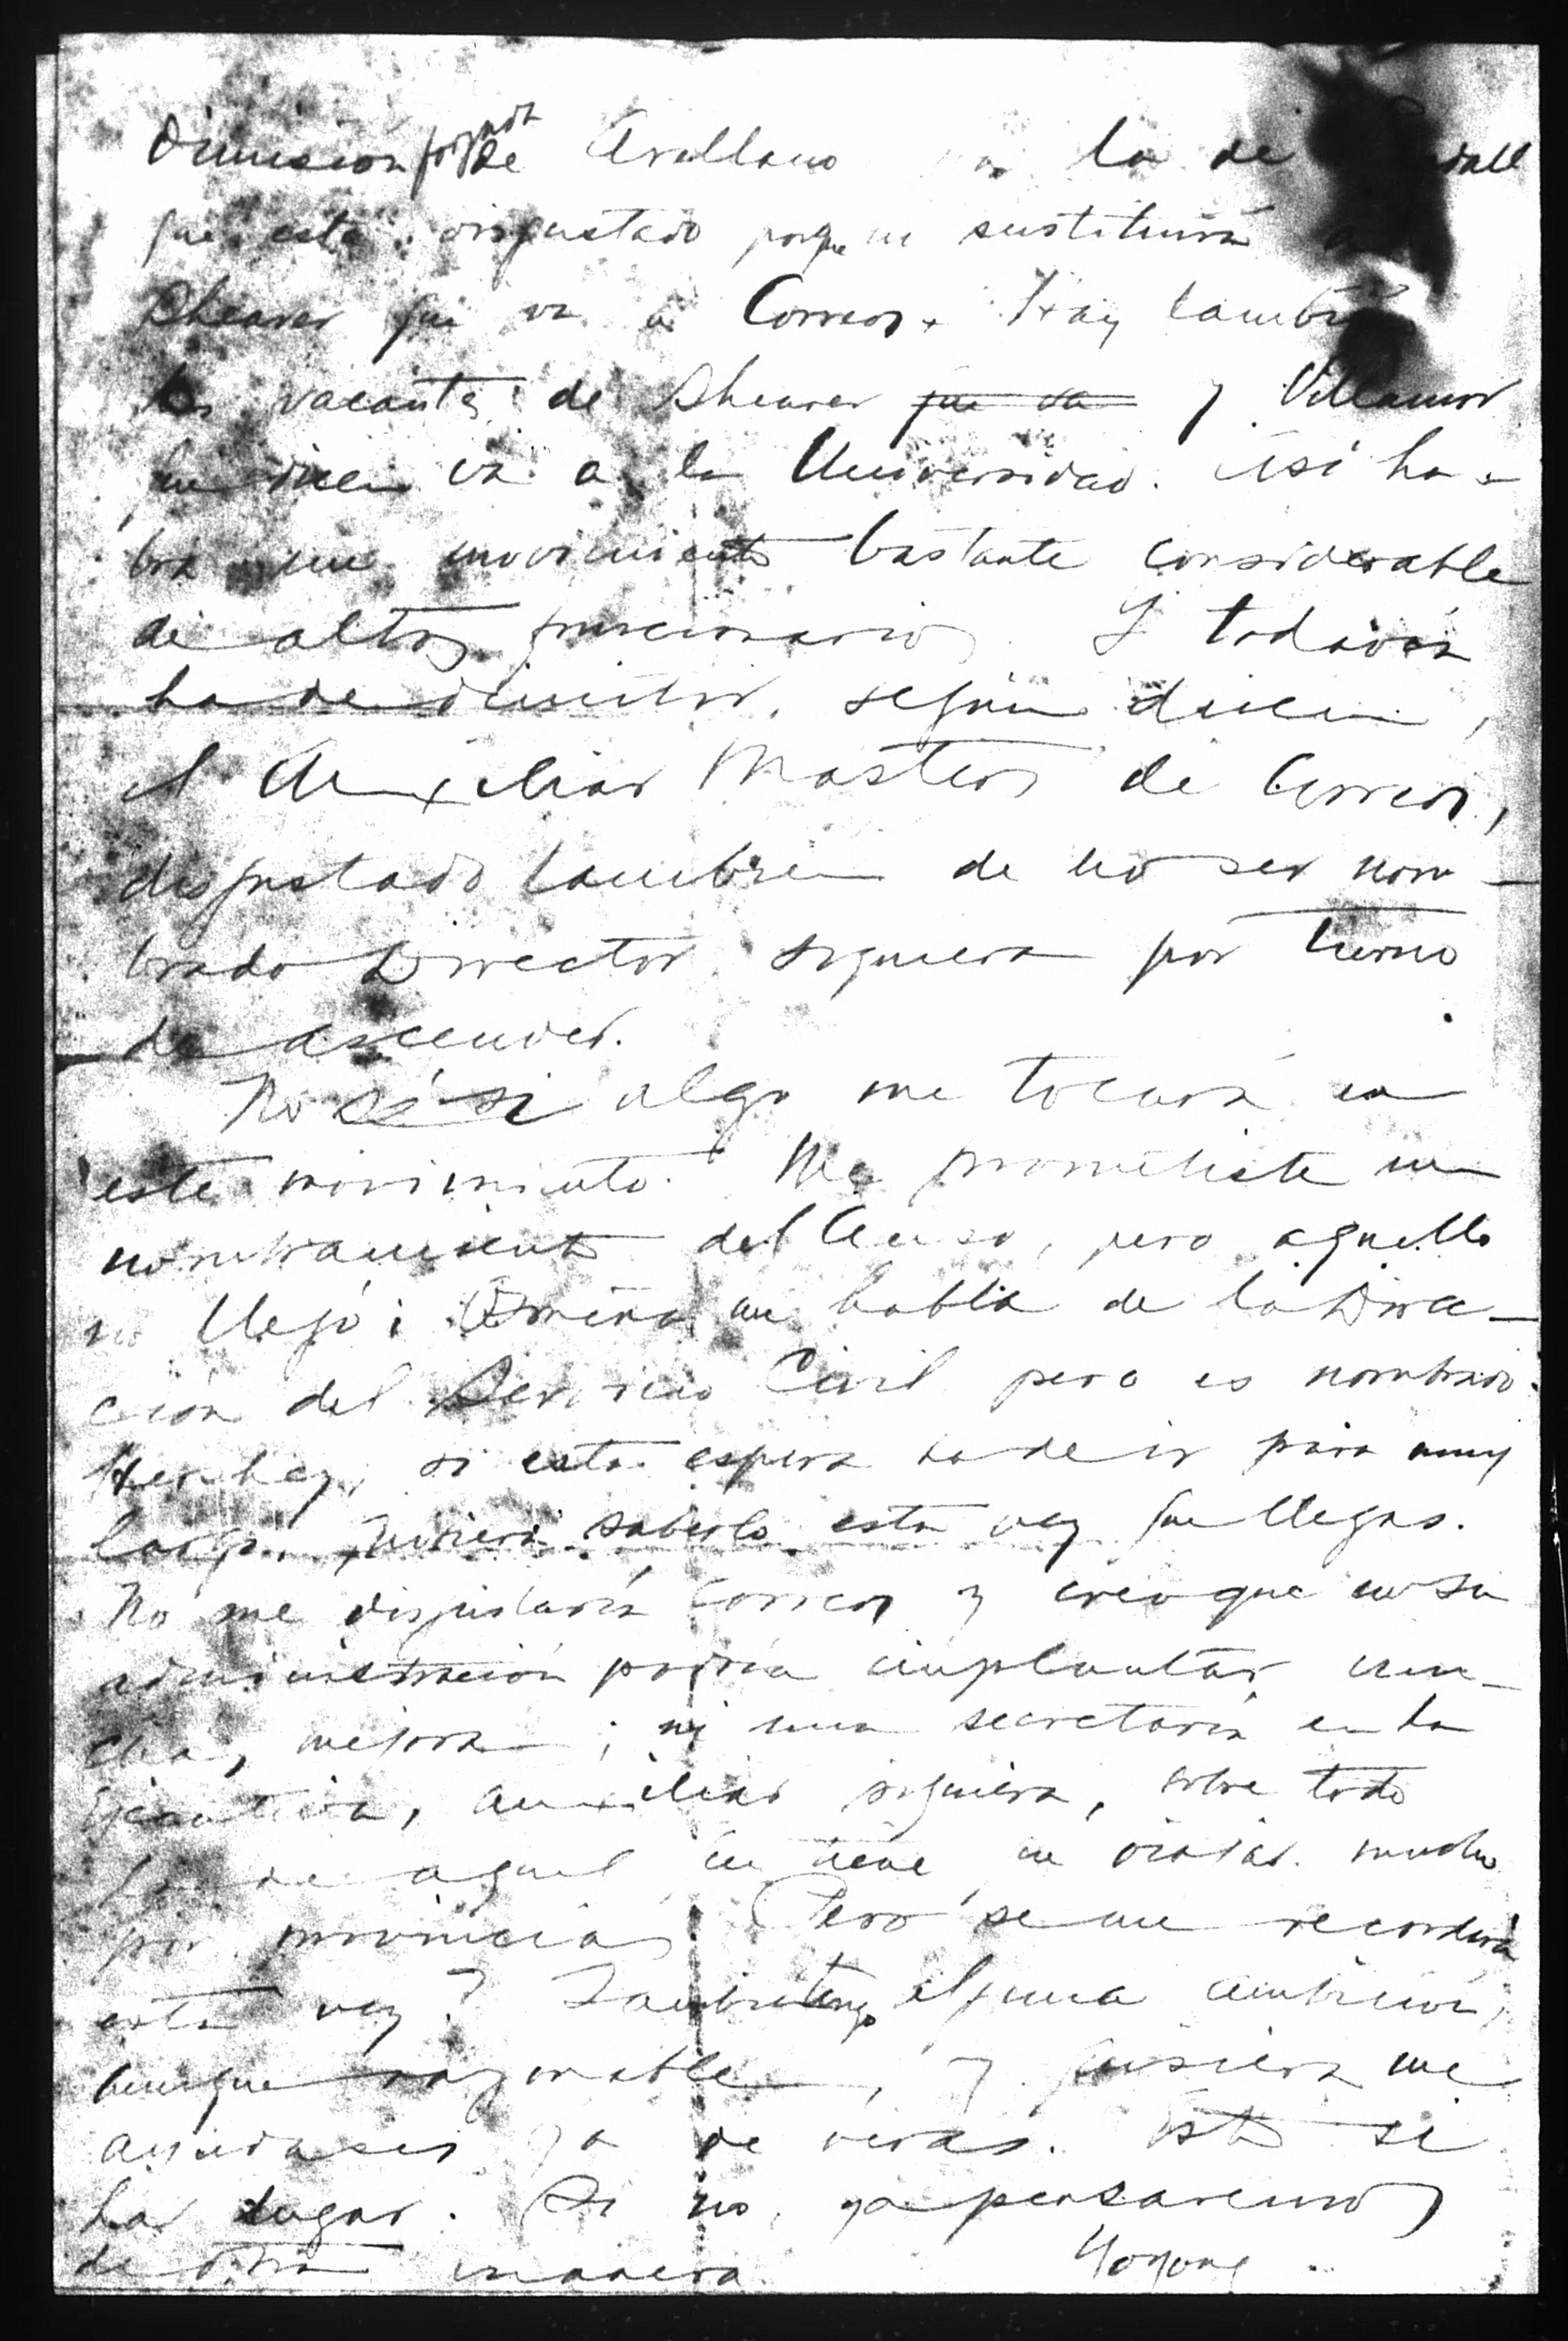 Dimisión forzada de Arellano la de
que está disgustado porque no sustituirá a
Shearer que va a Correos. Hay tambien
las vacantes de Shearer que va y Villamor
que dicen va a la Universidad. Así ha-
brá un movimiento bastante considerable
de altos funcionarios. Y todavía
ha de dimitir, según dicen,
el Auxiliar Masters de Correos,
disgustado tambien de no ser nom-
brado Director siquiera por turno
de ascender.
No sé si algo me tocará en
este movimiento. Me prometiste un
nombramiento del Censo, pero aquello
no llegó; me habla de la Direc-
ción del Servicio Civil pero es nombrado
si esta espera ha de ir para muy
largo. Quisiera saberlo esta vez que llegas.
No me disgustaría Correos y creo que en su
administración podría implantar mu-
chas mejoras; ni una secretaría en la
Ejecutiva, auxiliar siquiera, sobre todo
aquel que tiene que viajar mucho
por provincias. Pero se me recordará
esta vez? Tambien tengo alguna ambición,
aunque razonable, y quisiera me
ayudases ya de veras. Esto si
ha lugar. Si no, ya pensaremos
de otra manera.